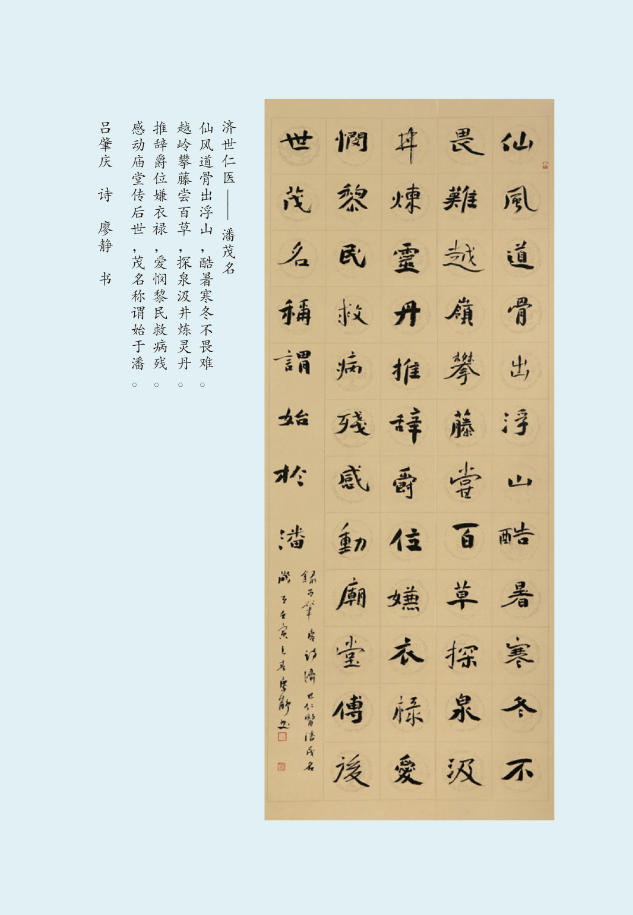 仙風道骨出浮山酷暑寒冬不
畏難越嶺攀藤嘗百草探泉汲
井煉靈丹推辞爵位嫌衣禄愛
憫黎民救病殘感動廟堂傳後
世茂名稱謂始於潘
济世仁医——潘茂名
仙风道骨出浮山，酷暑寒冬不畏难。
越岭攀藤尝百草，探泉汲井炼灵丹。
推辞爵位嫌衣禄，爱悯黎民救病残。
感动庙堂传后世，茂名称谓始于潘。
吕肇庆 诗 廖静 书